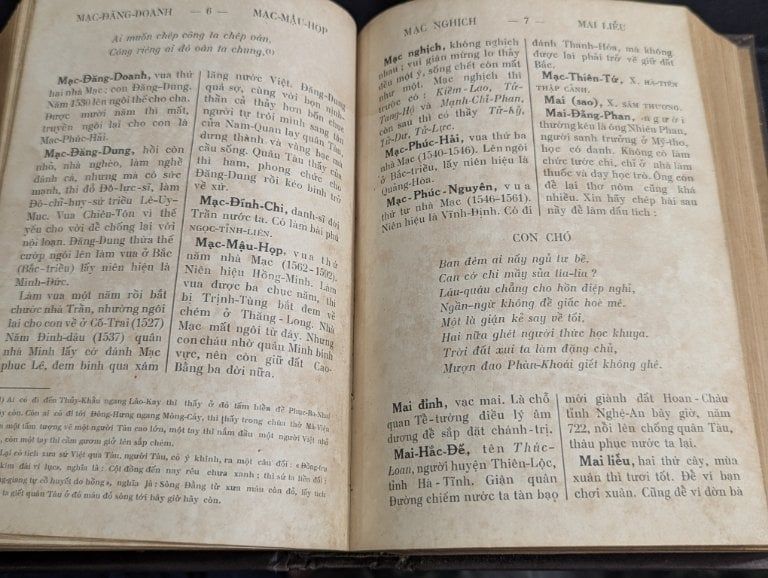 MẠC-ĐĂNG-DOANH — 6 — MẠC-MẬU-HỢP
Ai muốn chép công ta chép oán,
Công riêng ai đó oán ta chung.(1)
Mạc-Đăng-Doanh, vua thứ
hai nhà Mạc: con Đăng-Dung.
Năm 1530 lên ngôi thế cho cha.
Được mười năm thì mất,
truyền ngôi lại cho con là
Mạc-Phúc-Hải.
Mạc-Đăng-Dung, hồi còn
nhỏ, nhà nghèo, làm nghề
đánh cá, nhưng mà có sức
mạnh, thi đỗ Đô-lực-sĩ, làm
Đô-chỉ-huy-sứ triều Lê-Uy-
Mục. Vua Chiêu-Tôn vì thế
yếu cho vời để chống lại với
nội loạn. Đăng-Dung thừa thế
cướp ngôi lên làm vua ở Bắc
(Bắc-triều) lấy niên hiệu là
Minh-Đức.
Làm vua một năm rồi bắt
chước nhà Trần, nhường ngôi
lại cho con về ở Cổ-Trai (1527)
Năm Đinh-dậu (1537) quân
nhà Minh lấy cớ đánh Mạc
phục Lê, đem binh qua xâm
lăng nước Việt. Đăng-Dung
quá sợ, cùng với bọn
thần cả thảy hơn bốn chục
người tự trói mình sang tận
cửa Nam-Quan lạy quân Tàu,
dưng thành và vàng bạc mà
cầu sống. Quân Tàu thấy của
thì ham, phong chức cho
Đăng-Dung rồi kéo binh trở
về xứ.
Mạc-Đính-Chi, danh-sĩ đời
Trần nước ta. Có làm bài phú
NGỌC-TỈNH-LIÊN.
Mạc-Mậu-Hợp, vua thứ
năm nhà Mạc (1562-1592).
Niên hiệu Hồng-Minh. Làm
vua được ba chục năm, thì
bị Trịnh-Tùng bắt đem về
chém ở Thăng-Long. Nhà
Mạc mất ngôi từ đây. Nhưng
con cháu nhờ quân Minh binh
vực, nên còn giữ đất Cao-
Bằng ba đời nữa.
) Ai có đi đến Thủy-Khẩu ngang Lào-Kay thì thấy ở đó tấm biển đề
còn. Còn ai có đi tới Đông-Hưng ngang Móng-Cáy, thì thấy trong chùa thờ Mã-Viện
một tấm tượng vẽ một người Tàu cao lớn, một tay thì nắm đầu một người Việt nhỏ
, còn một tay thì cầm gươm giơ lên sắp chém.
Lại có tích xưa sứ Việt qua Tàu, người Tàu, có ý khinh, ra một câu đối: «Đồng-trụ
kim đài vi lục», nghĩa là: Cột đồng đến nay rêu chưa xanh; thì sứ ta liền đối:
-giang tự cổ huyết do hồng», nghĩa là: Sông Đằng từ xưa máu còn đỏ, lấy tích
ta giết quân Tàu ở đó máu đỏ sông tới bây giờ hãy còn.
MẠC NGHỊCH — 7 — MAI LIỄU
Mạc nghịch, không nghịch
nhau: vui gián mừng lo thấy
đều một ý, sống chết còn mất
như một. Mạc nghịch thì
trước có: Kiềm-Lao, Tử-
Tang-Hộ và Mạnh-Chi-Phan,
còn sau thì có thầy Tử-Kỷ,
Tử-Dư, Tử-Lực.
Mạc-Phúc-Hải, vua thứ ba
nhà Mạc (1540-1546). Lên ngôi
ở Bắc-triều, lấy niên hiệu là
Quảng-Hòa.
Mạc-Phúc-Nguyên, vua
thứ tư nhà Mạc (1546-1561).
Niên hiệu là Vĩnh-Định. Có đi
đánh Thanh-Hóa, mà không
được lại phải trở về giữ đất
Bắc.
Mạc-Thiên-Tứ, X. HÀ-TIÊN
THẬP CẢNH.
Mai (sao), X. SÂM THƯƠNG.
Mai-Đăng-Phan, người
thường kêu là ông Nhiêu Phan,
người sanh trưởng ở Mỹ-tho,
học có danh. Không có làm
chức tước chi, chỉ ở nhà làm
thuốc và dạy học trò. Ông còn
để lại thơ nôm cũng khá
nhiều. Xin hãy chép bài sau
nầy để làm dấu tích:
CON CHÓ
Ban đêm ai nấy ngủ tư bề.
Can cớ chi mầy sủa lia-lia?
Láu-quáu chẳng cho hồn điệp nghỉ,
Ngần-ngừ không để giấc hoè mê.
Một là giận kẻ say về tối,
Hai nữa ghét người thức học khuya.
Trời đất xui ta làm đặng chủ,
Mượn đao Phàn-Khoái giết không ghê.
Mai đỉnh, vạc mai. Là chỗ
quan Tể-tướng điều lý âm
dương để sắp đặt chánh-trị.
Mai-Hắc-Đế, tên Thúc-
Loan, người huyện Thiên-Lộc,
tỉnh Hà-Tĩnh. Giận quân
Đường chiếm nước ta tàn bạo
mới giành đất Hoan-Châu
tỉnh Nghệ-An bây giờ, năm
722, nổi lên chống quân Tàu,
thâu phục nước ta lại.
Mai liễu, hai thứ cây, mùa
xuân thì tươi tốt. Để ví bạn
chơi xuân. Cũng để ví đờn bà